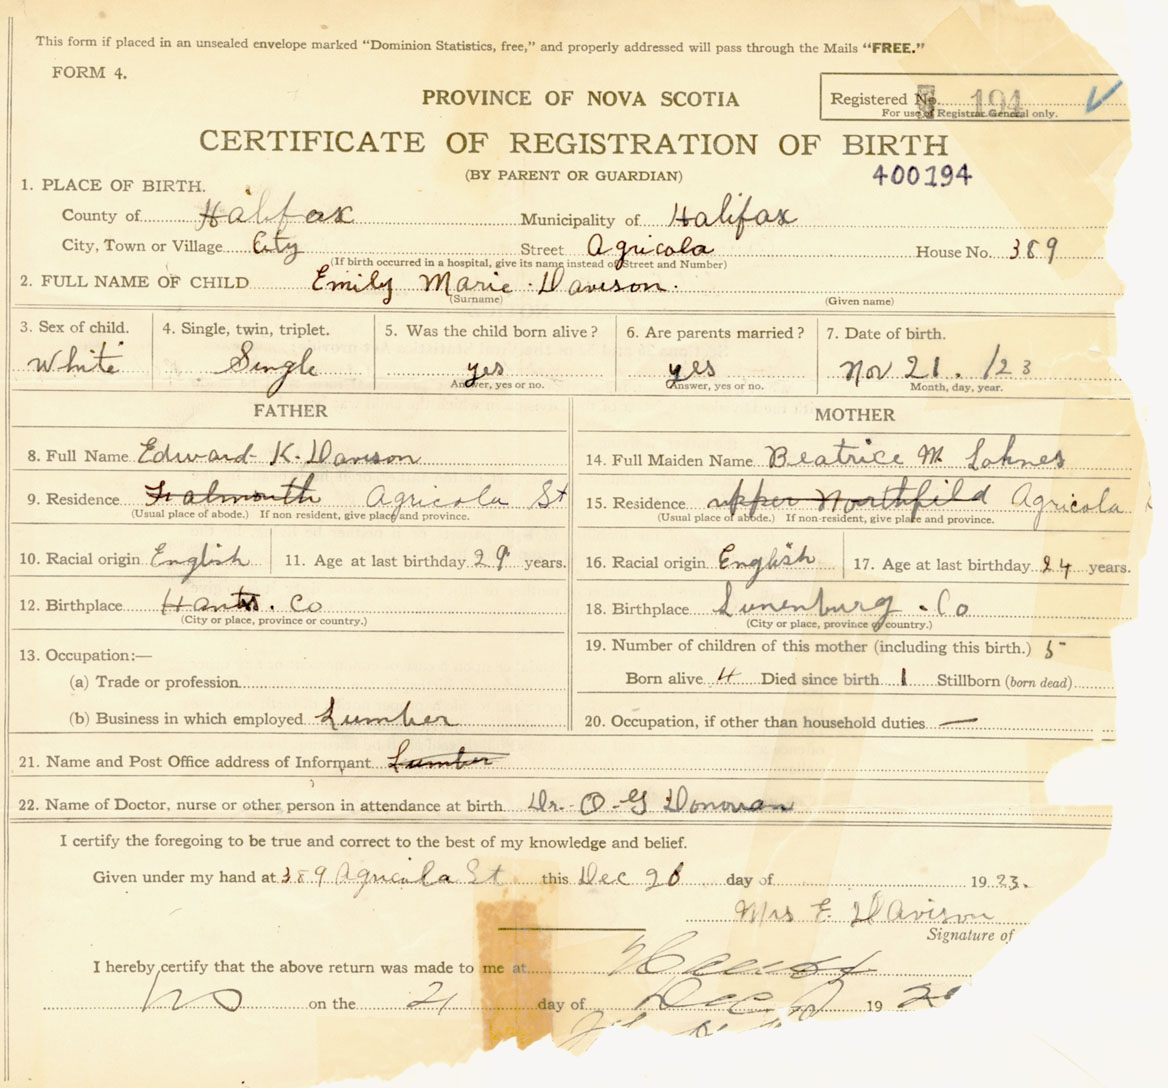 This form if placed in an unsealed envelope marked "Dominion Statistics, free," and properly addressed will pass through the Mails "FREE."
FORM 4.
PROVINCE OF NOVA SCOTIA
Registered No. 194
For use of Registrar General only.
CERTIFICATE OF REGISTRATION OF BIRTH
(BY PARENT OR GUARDIAN)
400194
1. PLACE OF BIRTH.
County of Halifax Municipality of Halifax
City, Town or Village City Street Agricola House No. 389
(If birth occurred in a hospital, give its name instead of Street and Number)
2. FULL NAME OF CHILD Emily Marie Davison.
(Surname) (Given name)
3. Sex of child. 4. Single, twin, triplet. 5. Was the child born alive? 6. Are parents married? 7. Date of birth.
White Single yes yes Nov 21. /23
Answer, yes or no. Answer, yes or no. Month, day, year.
FATHER
8. Full Name Edward K. Davison
9. Residence Falmouth Agricola St
(Usual place of abode.) If non resident, give place and province.
10. Racial origin English 11. Age at last birthday 29 years.
12. Birthplace Hants. Co
(City or place, province or country.)
13. Occupation:—
(a) Trade or profession
(b) Business in which employed Lumber
MOTHER
14. Full Maiden Name Beatrice M. Lohnes
15. Residence upper Northfild Agricola
(Usual place of abode.) If non-resident, give place and province.
16. Racial origin English 17. Age at last birthday 24 years.
18. Birthplace Lunenburg. Co
(City or place, province or country.)
19. Number of children of this mother (including this birth.) 5
Born alive 4 Died since birth 1 Stillborn (born dead)
20. Occupation, if other than household duties —
21. Name and Post Office address of Informant Lumber
22. Name of Doctor, nurse or other person in attendance at birth Dr. O. G Donovan
I certify the foregoing to be true and correct to the best of my knowledge and belief.
Given under my hand at 389 Agricola St this Dec 20 day of 1923.
Mrs E. Davison
Signature of
I hereby certify that the above return was made to me at
on the 21 day of Dec 19 2